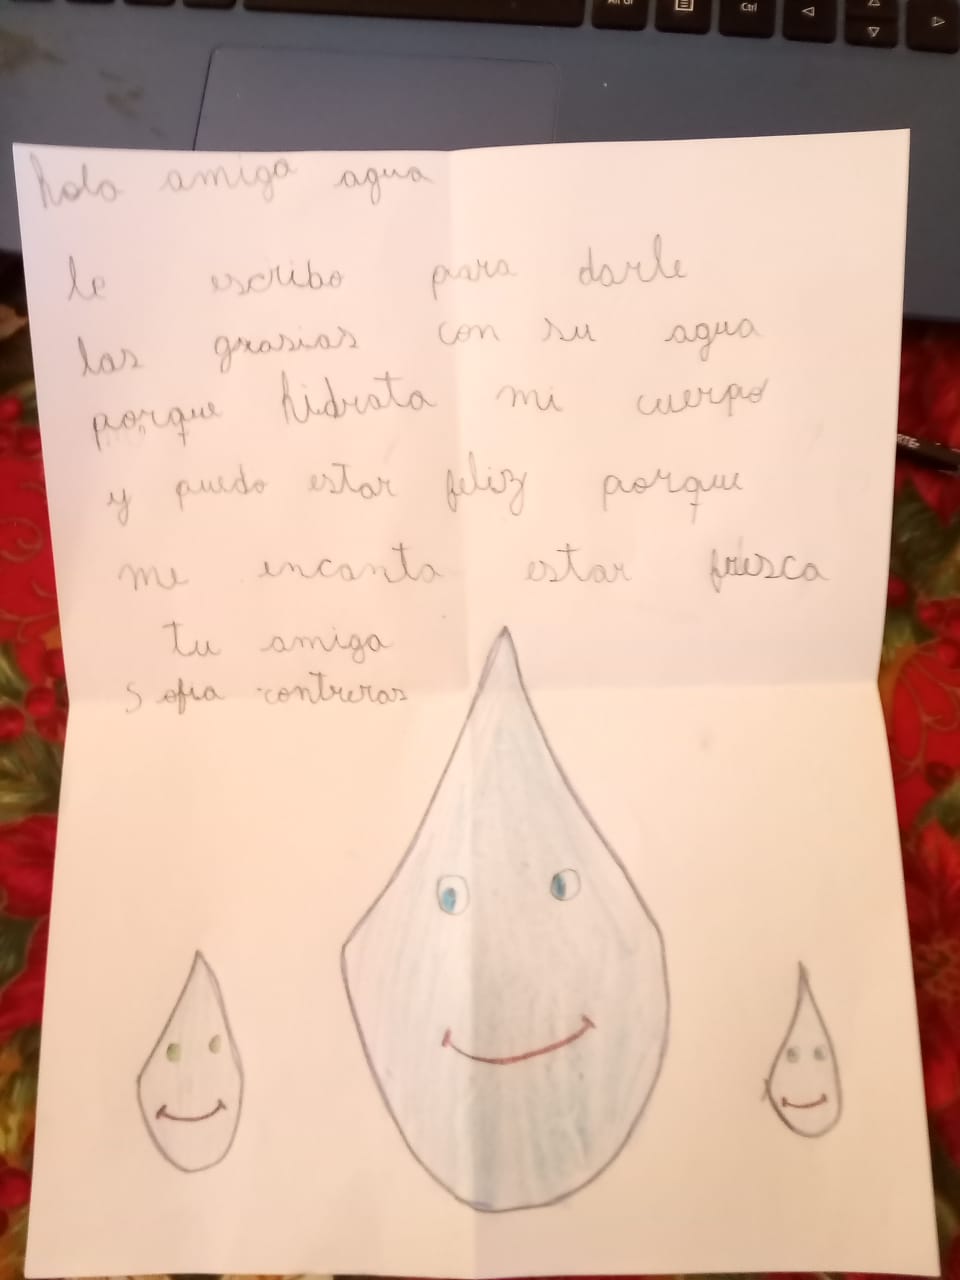 Alt Gr
Ctrl
hola amiga agua
le escribo para darle
las grasias con su agua
porque hidrata mi cuerpo
y puedo estar feliz porque
me encanta estar fresca
tu amiga
Sofia contreras